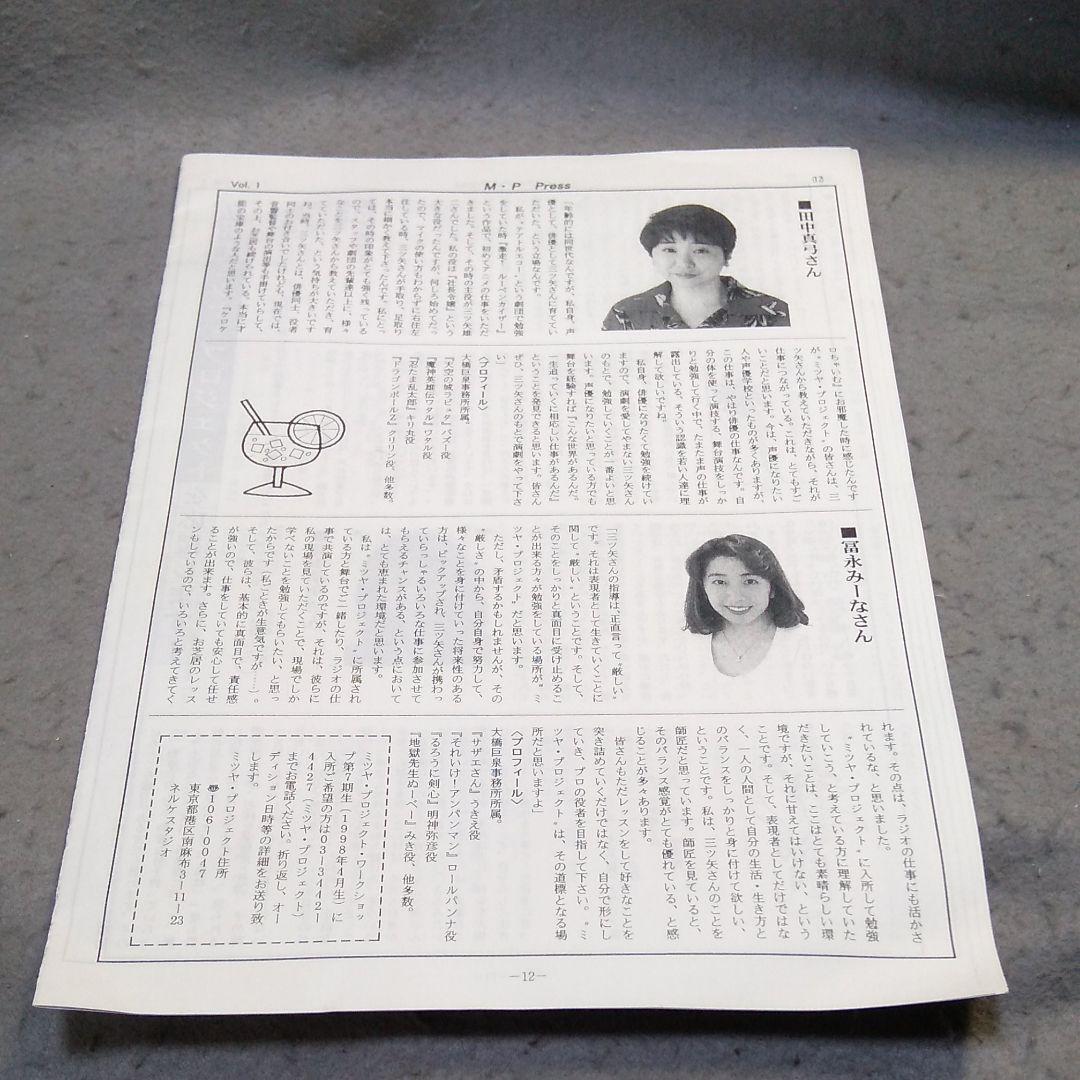 Vol. 1
M・P Press
■田中真弓さん
「年齢的には同世代なんですが、私自身、声
優として、俳優として三ツ矢さんに育ててい
ただいた、という立場なんです。
私が『テアトルエコー』という劇団で勉強
をしていた時、『激走！ルーベンカイザー』
という作品で、初めてアニメの仕事をいただ
きました。そして、その時の主役が三ツ矢雄
二さんでした。私の役は『社長令嬢』という
大きな役だったんですが、何しろ始めてだっ
たので、マイクの使い方もわからずに右往左
往している時、三ツ矢さんが手取り、足取り
本当に細かく教え下さったんです。私にとっ
ては、その時の印象がとても強く残っている
ので、スタッフや劇団の先輩達以上に、様々
なことを三ツ矢さんから教えていただき、育
てていただいた、という気持ちが大きいです
ね。当時、三ツ矢さんとは、俳優同士、役者
同士のお付き合いでしたけれど、現在では、
音響監督や舞台の演出等も手掛けていらして、
その上、お芝居も続けられている、本当に才
能の宝庫のような人だと思います。『ケロケ
ロちゃいむ』にお邪魔した時に感じたんです
が、〝ミツヤ・プロジェクト〟の皆さんは、三
ツ矢さんから教えていただきながら、それが
仕事につながっている。これは、とてもすご
いことだと思います。今は、声優になりたい
人や声優学校といったものが多くありますが、
この仕事は、やはり俳優の仕事なんです。自
分の体を使って演技する、舞台演技をしっか
りと勉強して行く中で、たまたま声の仕事が
露出している、そういう認識を若い人達に理
解して欲しいですね。
私自身、俳優になりたくて勉強を続けてい
ますので、演劇を愛してやまない三ツ矢さん
のもとで、勉強していくことが一番よいと思
います。声優になりたいと思っている方でも
舞台を経験すれば『こんな世界があるんだ。
一生追っていくに相応しい仕事があるんだ』
ということを発見できると思います。皆さん
ぜひ、三ツ矢さんのもとで演劇をやって下さ
い」
〈プロフィール〉
大橋巨泉事務所所属。
『天空の城ラピュタ』パズー役
『魔神英雄伝ワタル』ワタル役
『忍たま乱太郎』キリ丸役
『ドラゴンボールZ』クリリン役、他多数。
■冨永みーなさん
「三ツ矢さんの指導は、正直言って〝厳しい〟
です。それは表現者として生きていくことに
関して〝厳しい〟ということです。そして、
そのことをしっかりと真面目に受け止めるこ
とが出来る方々が勉強をしている場所が〝ミ
ツヤ・プロジェクト〟だと思います。
ただし、矛盾するかもしれませんが、その
〝厳しさ〟の中から、自分自身で努力して、
様々なことを身に付けていった将来性のある
方は、ピックアップされ、三ツ矢さんが携わっ
ていらっしゃるいろいろな仕事に参加させて
もらえるチャンスがある、という点において
は、とても恵まれた環境だと思います。
私は〝ミツヤ・プロジェクト〟に所属され
ている方と舞台でご一緒したり、ラジオの仕
事で共演しているのですが、それは、彼らに
私の現場を見ていただくことで、現場でしか
学べないことを勉強してもらいたい、と思っ
たからです（私ごときが生意気ですが……）。
そして、彼らは、基本的に真面目で、責任感
が強いので、仕事をしていても安心して任せ
ることが出来ます。さらに、お芝居のレッス
ンもしているので、いろいろと考えてきてく
れます。その点は、ラジオの仕事にも活かさ
れているな、と思いました。
〝ミツヤ・プロジェクト〟に入所して勉強
していこう、と考えている方に理解していた
だきたいことは、ここはとても素晴らしい環
境ですが、それに甘えてはいけない、という
ことです。そして、表現者としてだけではな
く、一人の人間として自分の生活・生き方と
のバランスをしっかりと身に付けて欲しい、
ということです。私は、三ツ矢さんのことを
師匠だと思っています。師匠を見ていると、
そのバランス感覚がとても優れている、と感
じることが多々あります。
皆さんもただレッスンをして好きなことを
突き詰めていくだけではなく、自分で形にし
ていき、プロの役者を目指して下さい。〝ミ
ツヤ・プロジェクト〟は、その道標となる場
所だと思いますよ」
〈プロフィール〉
大橋巨泉事務所所属。
『サザエさん』うきえ役
『それいけ！アンパンマン』ロールパンナ役
『るろうに剣心』明神弥彦役
『地獄先生ぬ〜べ〜』みき役、他多数。
ミツヤ・プロジェクト・ワークショッ
プ第7期生（1998年4月生）に
入所ご希望の方は03-3442-
4427（ミツヤ・プロジェクト）
までお電話ください。折り返し、オー
ディション日時等の詳細をお送り致
します。
ミツヤ・プロジェクト住所
〠106-0047
東京都港区南麻布3-11-23
ネルケスタジオ
—12—